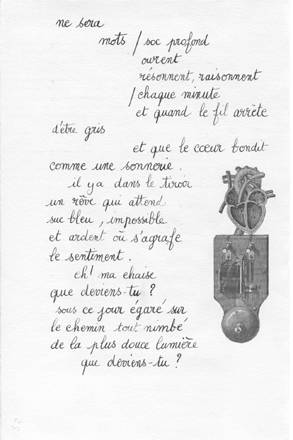 ne sera
mots / soc profond
ouvrent
résonnent, raisonnent
/ chaque minute
et quand le fil arrête
d'être gris
et que le cœur bondit
comme une sonnerie.
il y a dans le tiroir
un rêve qui attend
sac bleu, impossible
et ardent où s'agrafe
le sentiment.
eh! ma chaise
que deviens-tu ?
sous ce jour égaré sur
le chemin tout nimbé
de la plus douce lumière
que deviens-tu ?